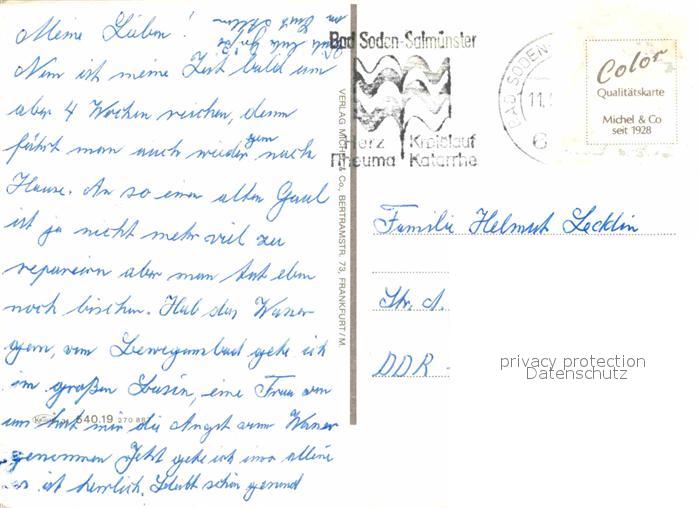 Meine Lieben!
Nun ist meine Zeit bald um
aber 4 Wochen reichen, dann
fährt man auch wieder gern nach
Hause. An so einen alten Gaul
ist ja nicht mehr viel zu
reparieren aber man tut eben
noch bischen. Hab das Wasser
gern, vom Bewegungsbad gehe ich
im großen Basin, eine Frau von
uns hat mir die Angst vom Wasser
genommen Jetzt gehe ich immer alleine
es ist herrlich. Bleibt schön gesund
VERLAG MICHEL & Co., BERTRAMSTR. 73, FRANKFURT/M.
640.19 270 88
Bad Soden-Salmünster
Herz Kreislauf
Rheuma Katarrhe
BAD SODEN-
11.
6
Color
Qualitätskarte
Michel & Co
seit 1928
Familie Helmut Lecklin
Str. d.
DDR -
privacy protection
Datenschutz